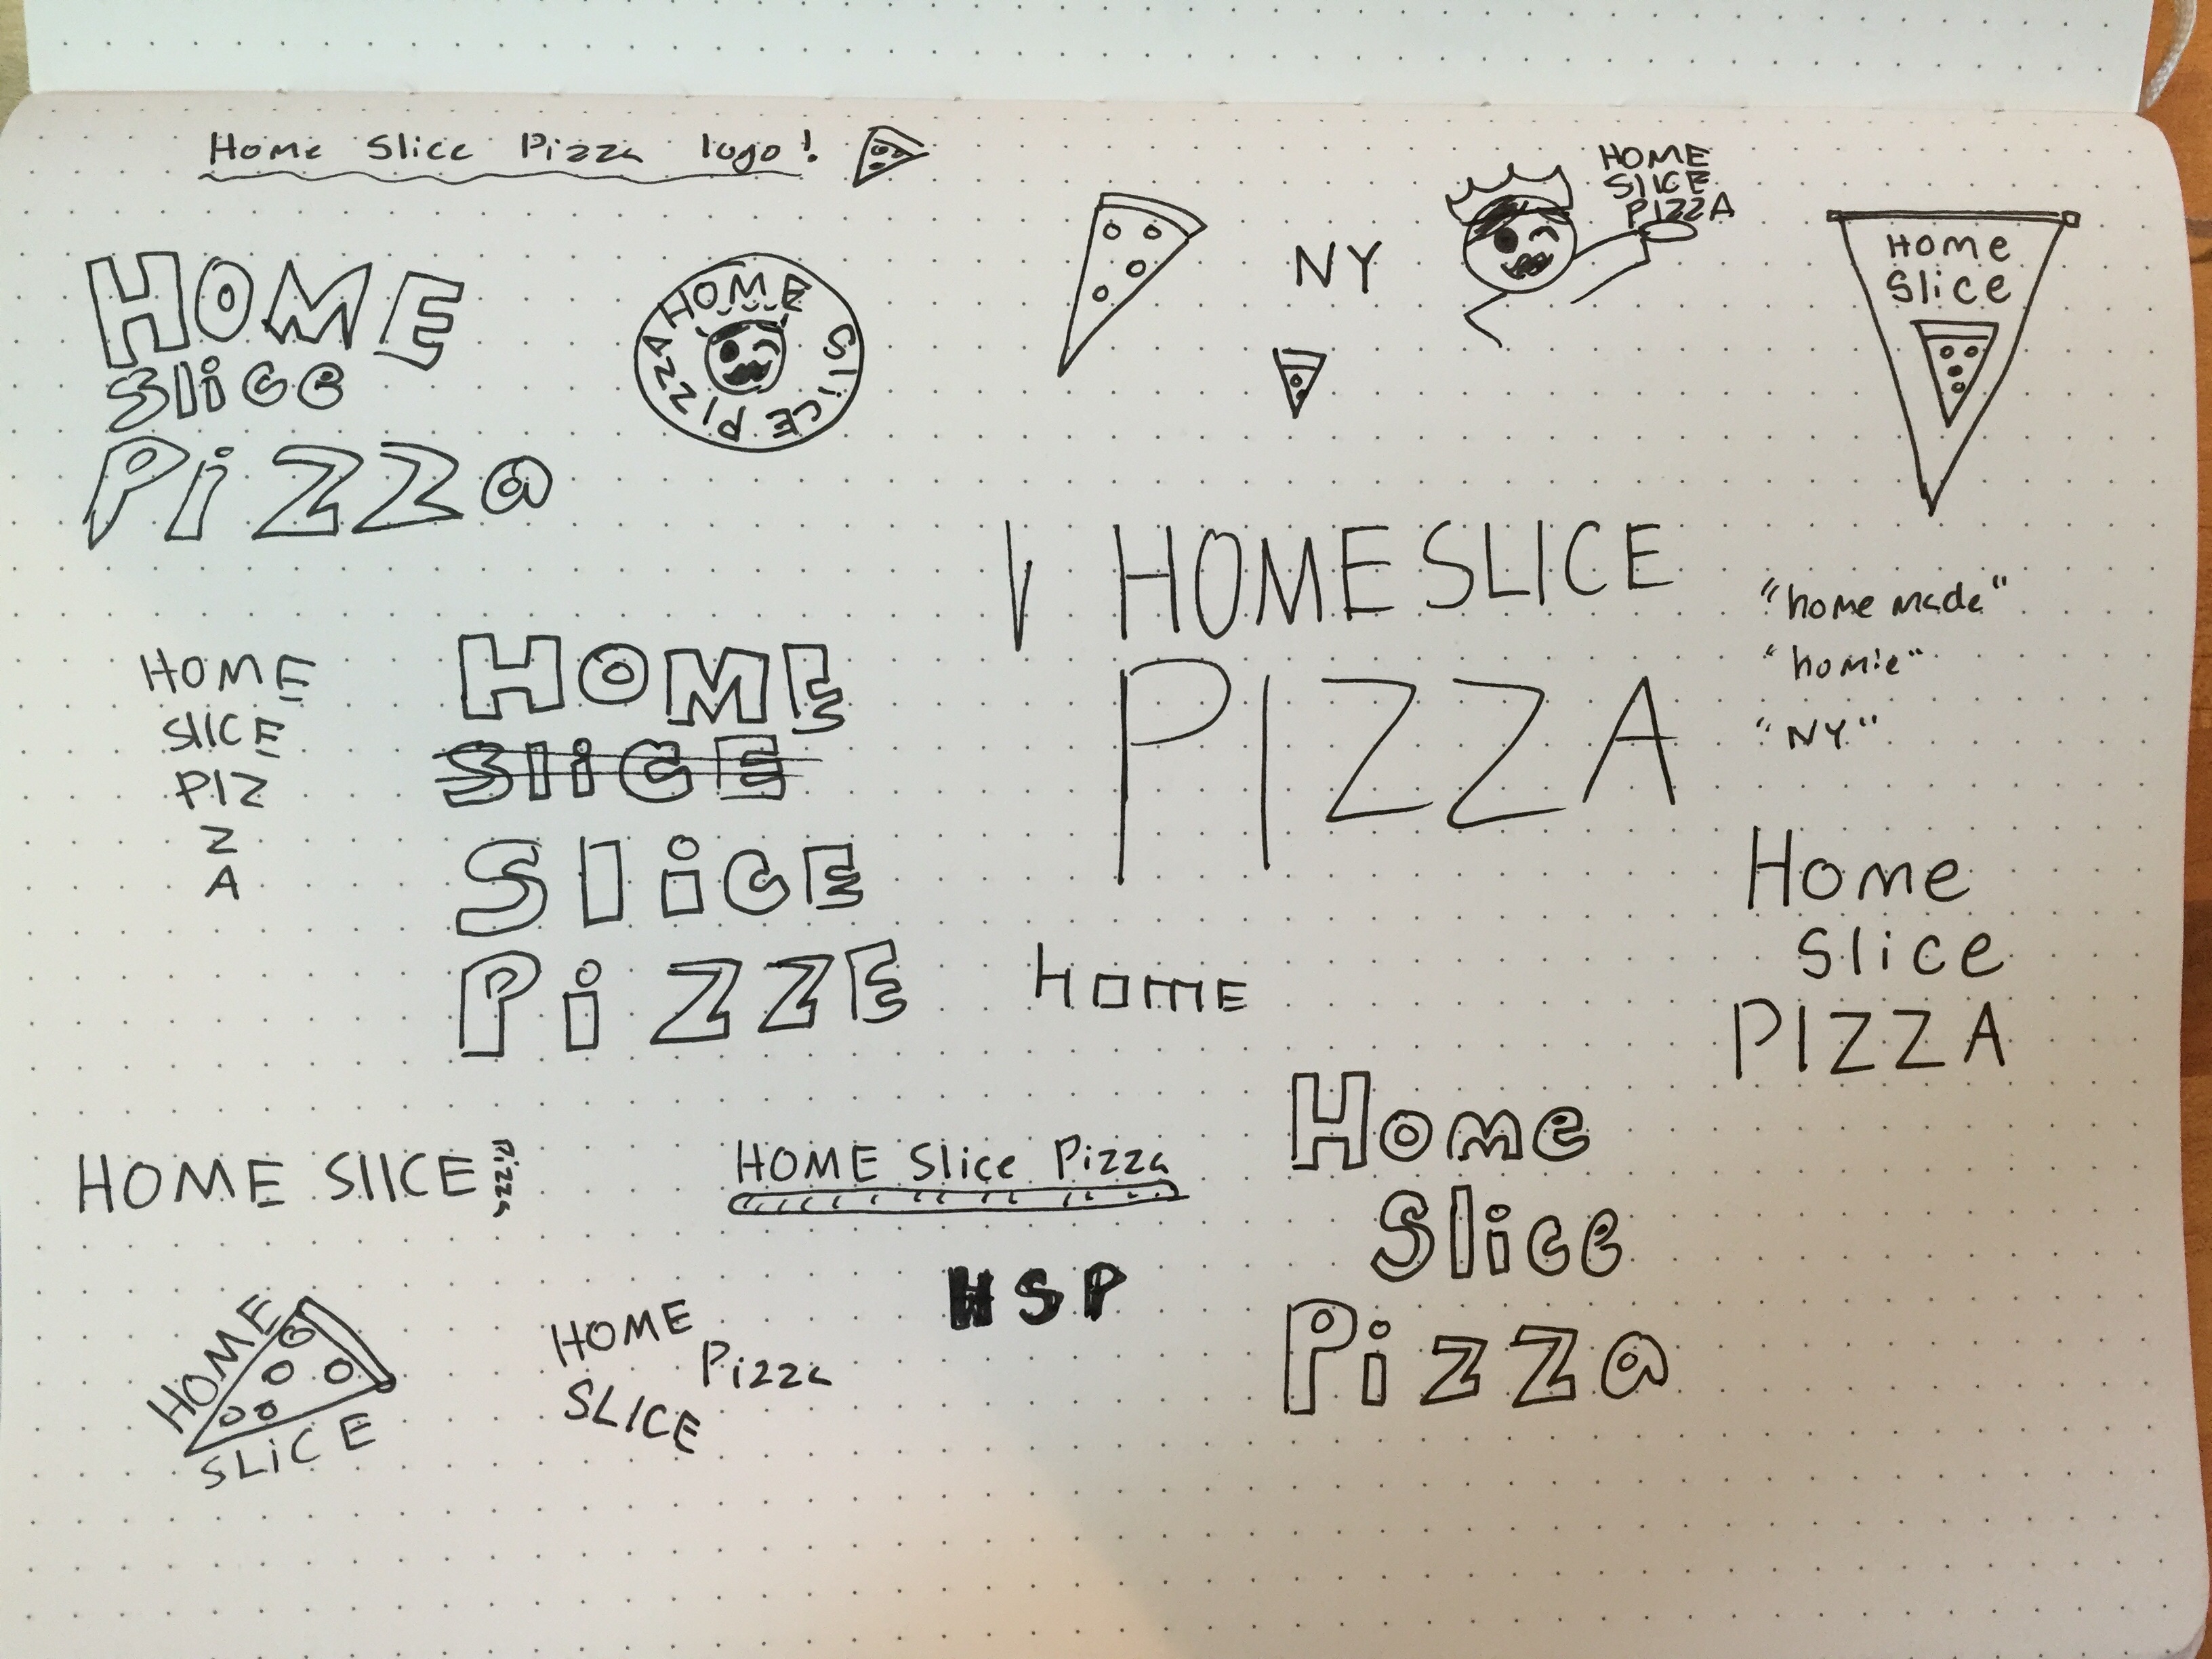 Home Slice Pizza logo!
HOME
Slice
Pizza
HOME SLICE PIZZA
NY
HOME
SLICE
PIZZA
Home
Slice
HOME SLICE
PIZZA
"home made"
"homie"
"NY"
HOME
SLICE
PIZ
Z
A
HOME
SliCE
SliCE
PiZZE
HOME
Home
Slice
PIZZA
HOME SLICE Pizza
HOME Slice Pizza
Home
Slice
Pizza
HSP
HOME
SLiCE
HOME
Pizza
SLICE